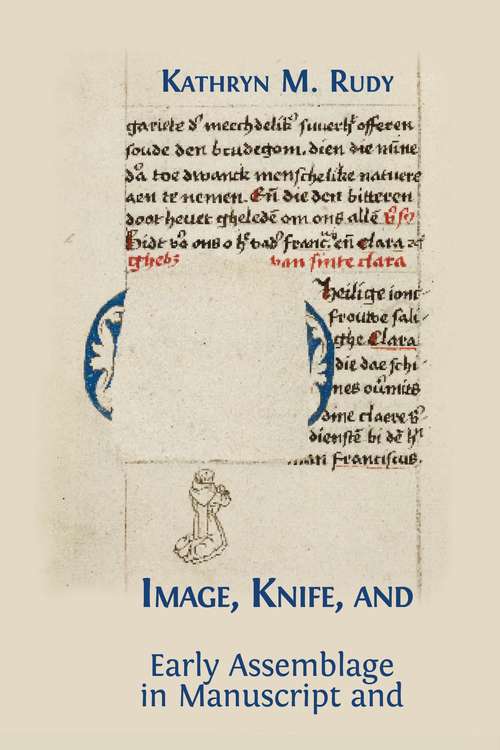 KATHRYN M. RUDY
gariete d' meechdelik' suuerh' offeren
soude den brudegom. dien die
toe dwanck menschelike natuere
aen te nemen. Eñ die den bitteren
doot heuet gheledē om ons allē
Bidt vo' ons o h' vad' franc'. eñ clara
ghebz van sinte clara
Heilige ionc-
frouwe sali-
ghe Clara
die dae schi-
nes ou'mits
dine claere v'-
dienstē bi dē h'
man Franciscus.
IMAGE, KNIFE, AND
Early Assemblage
in Manuscript and